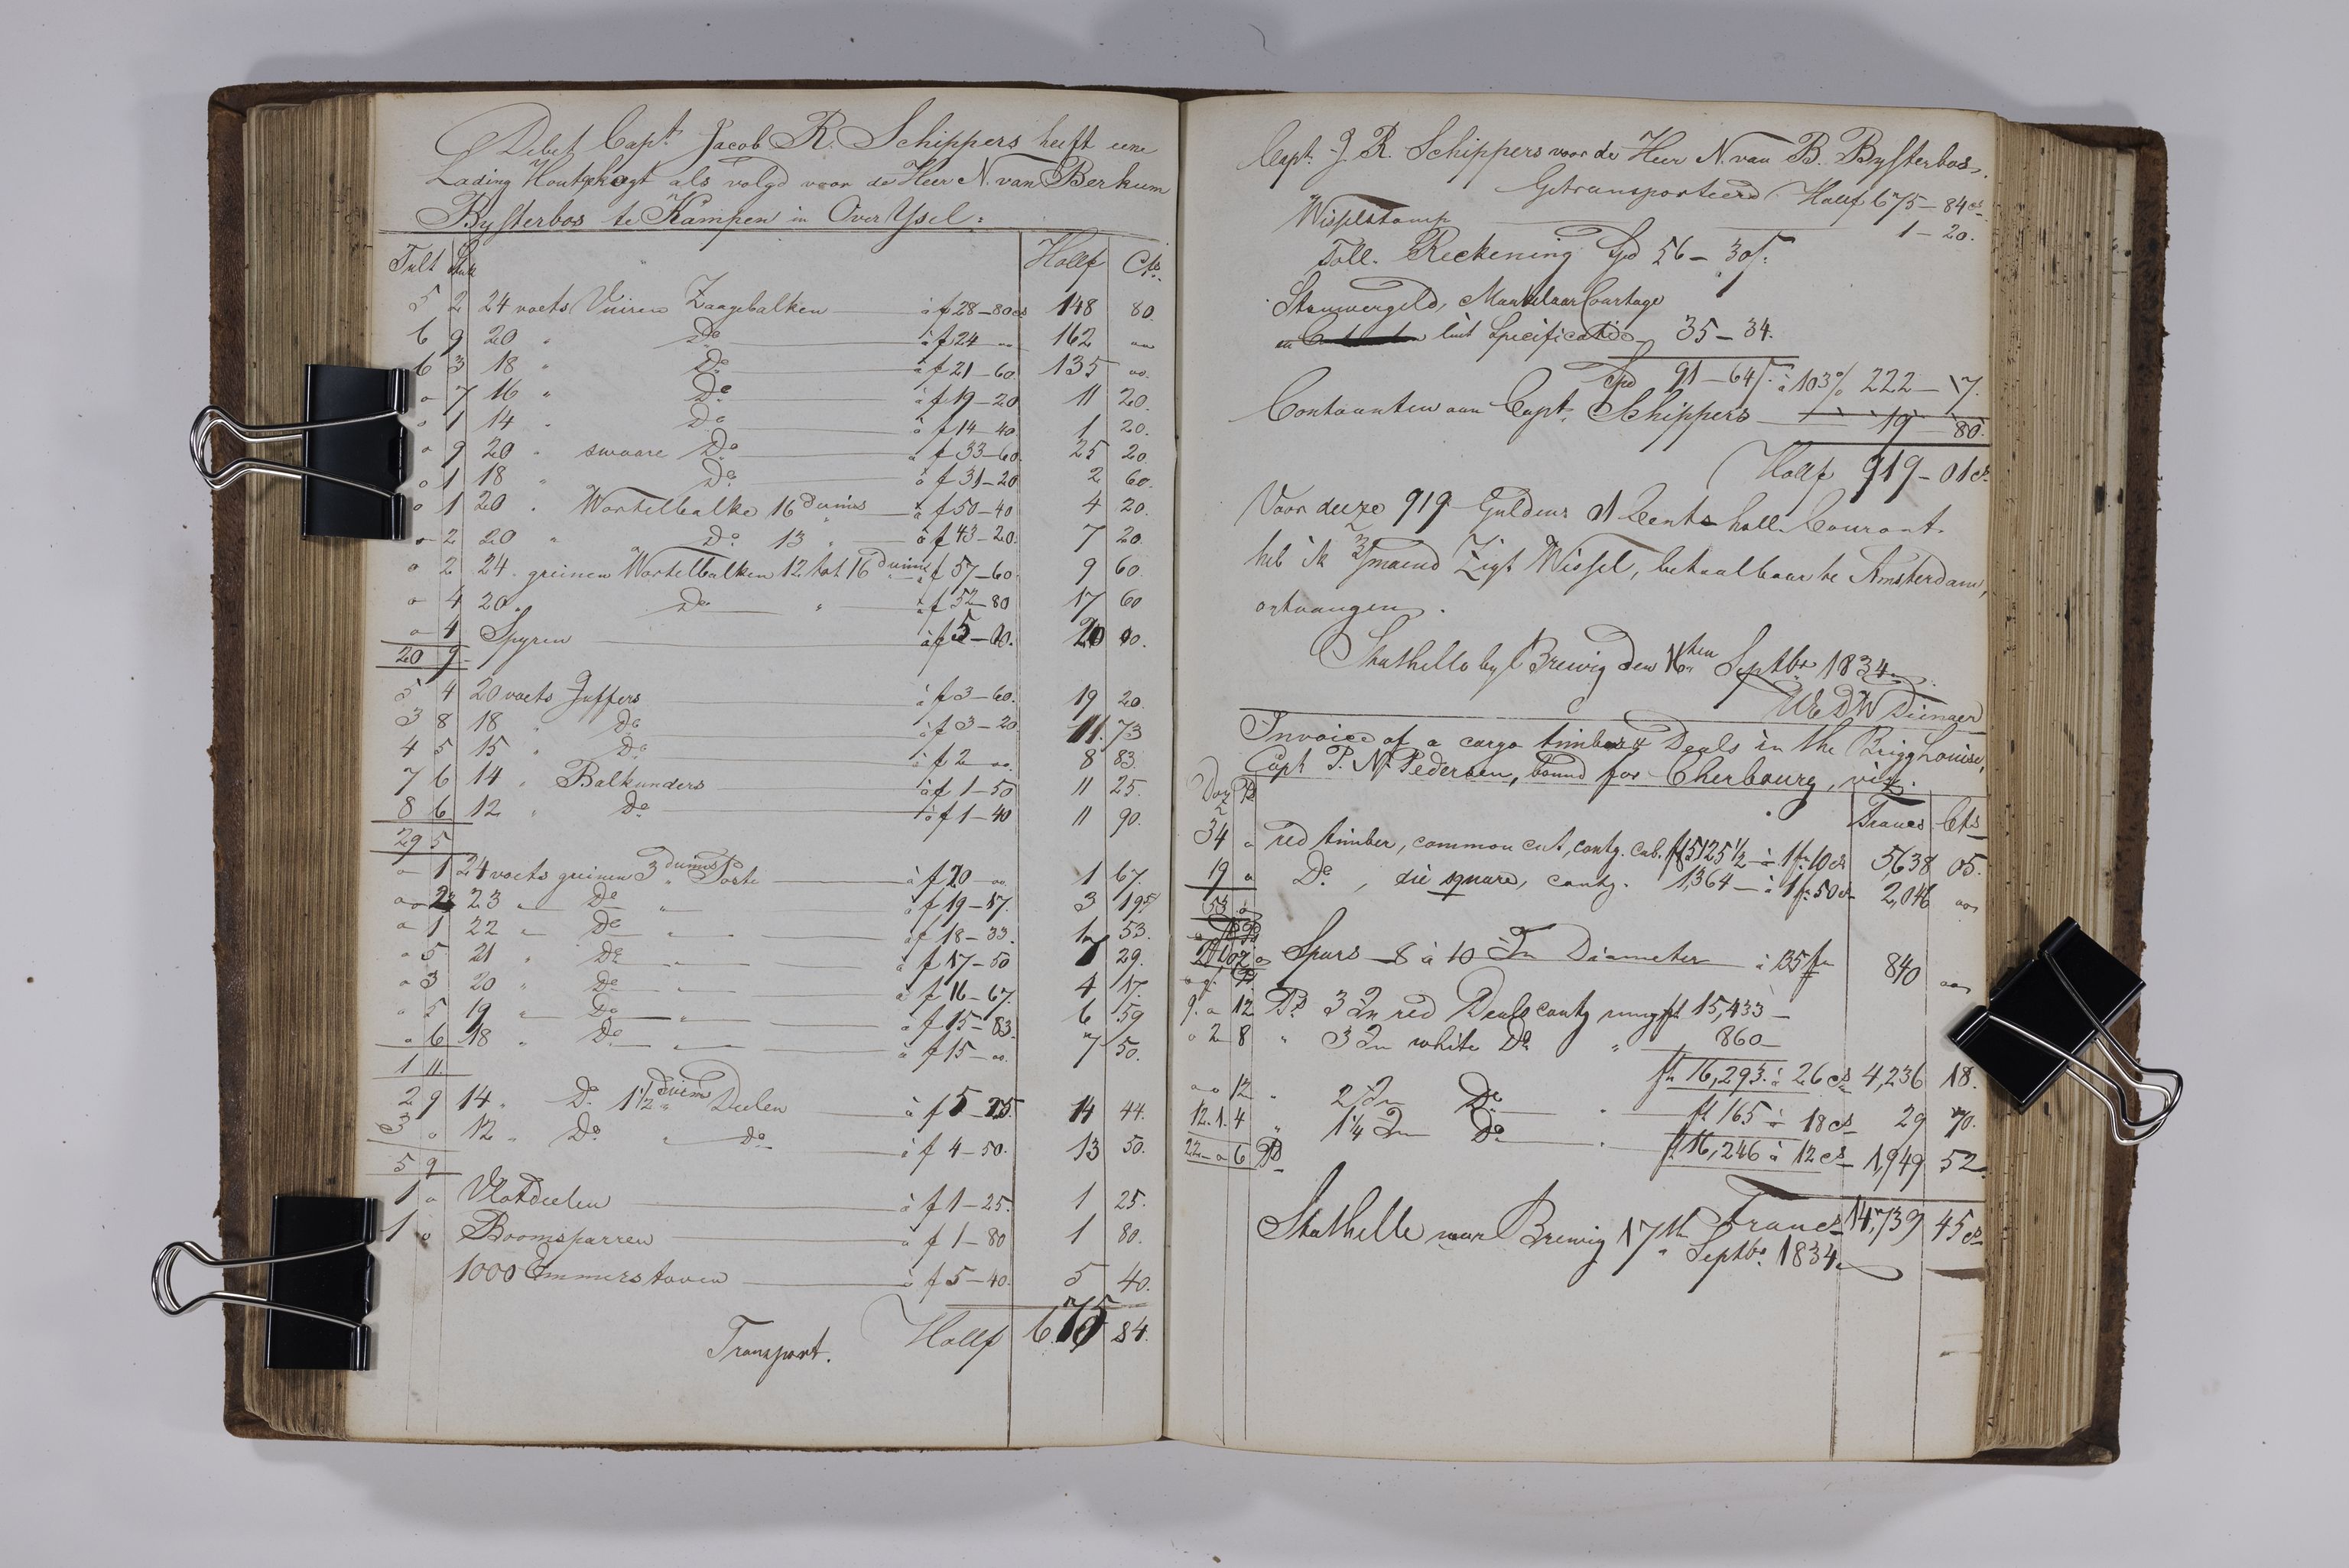 Debet Capt. Jacob R. Schippers heeft eene
Lading Hout als volgd voor de Heer N. van Berkum
Bysterbos te Kampen in Over Ysel:
Tult Stuk Hollf Cts.
5 2 24 voets Vuiren Zaagebalken à f 28-80cs 148 80.
6 9 20 " Do à f 24 " 162 "
6 3 18 " Do à f 21-60. 135 "
" 7 16 " Do à f 19-20 11 20.
" 1 14 " Do à f 14-40. 1 20.
" 9 20 " swaare Do à f 33-60. 25 20.
" 1 18 " Do à f 31-20 2 60.
" 1 20 " Wortelbalke 16 duims à f 50-40 4 20.
" 2 20 " Do 13 " à f 43-20. 7 20.
" 2 24 greinen Wortelbalken 12 tot 16 duims à f 57-60. 9 60
" 4 20 " Do " à f 52-80 17 60
" 4 Spyren à f 5-00. 20 00.
20 9
5 4 20 voets Juffers à f 3-60. 19 20.
3 8 18 " Do à f 3-20 11 73
4 5 15 " Do à f 2 " 8 83.
7 6 14 " Balkunders à f 1-50 11 25.
8 6 12 " Do à f 1-40 11 90.
29 5
" 1 24 voets greinen 3 duims Poste à f 20 " 1 67.
" 2 23 " Do " à f 19-17. 3 19
" 1 22 " Do " à f 18-33. 1 53.
" 5 21 " Do " à f 17-50 7 29.
" 3 20 " Do " à f 16-67. 4 17.
" 5 19 " Do " à f 15-83. 6 59
" 6 18 " Do " à f 15 " 7 50.
1 11.
2 9 14 " Do 1½ duims Deelen à f 5-25. 14 44.
3 " 12 " Do " Do à f 4-50. 13 50.
5 9
1 " Vlotdeelen à f 1-25. 1 25.
1 " Boomsparren à f 1-80 1 80.
1000 Emmerstaven à f 5-40. 5 40.
Transport. Hollf 675 84.
Capt. J. R. Schippers voor de Heer N. van B. Bysterbos.
Getransporteerd Hollf 675-84cs
Wisselstamp 1-20.
Toll. Reckening Spd 56-30
Stuuwergeld, Maakelaar Courtage
luit Specificatio 35-34.
Spd 91-64 à 103% 222-17.
Contanten aan Capt. Schippers 19 80.
Hollf 919-01cs
Voor deeze 919 Guldens 01 Cents holl. Courant
heb ik 3/maend Zigt Wissel, betaalbaar te Amsterdam,
ontvangen.
Stathelle by Brewig den 16ten Septbr 1834.
Invoice of a cargo timber & Deals in the Brigg Louise,
Capt P. N. Pedersen, bound for Cherbourg, viz.
Francs Cts
34 " red timber, common cut, contg. cub. ft 5125½ à 1fr 10cs 5,638 05.
19 " Do, die square, contg. 1,364 à 1fr 50cs 2,046 "
53 "
Spars 8 à 10 In Diameter à 35fr 840 "
9 " 12 Ps 3 In red Deals contg rung ft 15,433
" 2 8 " 3 In white Do " 860
ft 16,293 à 26cs 4,236 18.
" " 12 " 2 In Do ft 165 à 18cs 29 70.
12. 1. 4 " 1¼ In Do ft 16,246 à 12cs 1,949 52
22 " 6 Ps
Francs 14,739 45cs
Stathelle near Brewig 17th Septbr. 1834.